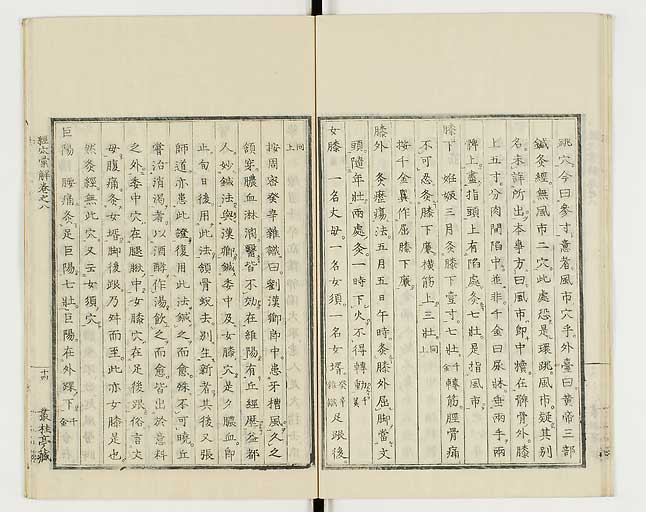 跳穴今曰參寸意者風市穴乎外臺曰黃帝三部
鍼灸經無風市二穴此處恐是環跳風市疑其別
名未詳所出本事方曰風市即中犢在髀骨外膝
上五寸分肉間陷中並非千金曰屎牀垂兩手兩
髀上盡指頭上有陷處灸七壯是指風市
膝下 妊娠三月灸膝下壹寸七壯千金轉筋脛骨痛
不可忍灸膝下廉橫筋上三壯同上
按千金翼作屈膝下廉
膝外 灸癧瘍法五月五日午時灸膝外屈腳當文
頭隨年壯兩處灸一時下火不得轉動
女膝 一名丈母一名女須一名女壻癸辛雜識足跟後
同上
按周密癸辛雜識曰劉漢卿郎中患牙槽風久之
頷穿膿血淋漓醫皆不効在維陽有丘經歷益都
人妙鍼法與漢卿鍼委中及女膝穴是夕膿血即
止旬日後用此法頷骨蛻去別生新者其後又張
師道亦患此證復用此法鍼之而愈殊不可曉丘
嘗治消渴者以酒醉作湯飲之而愈皆出於意料
之外委中穴在腿膕中女膝穴在足後跟俗言丈
母腹痛灸女壻腳後跟乃舛而至此亦女膝是也
然灸經無此穴又云女須穴
巨陽 腰痛灸足巨陽七壯巨陽在外踝下千金
經穴彙解卷之八
十四
叢桂亭藏